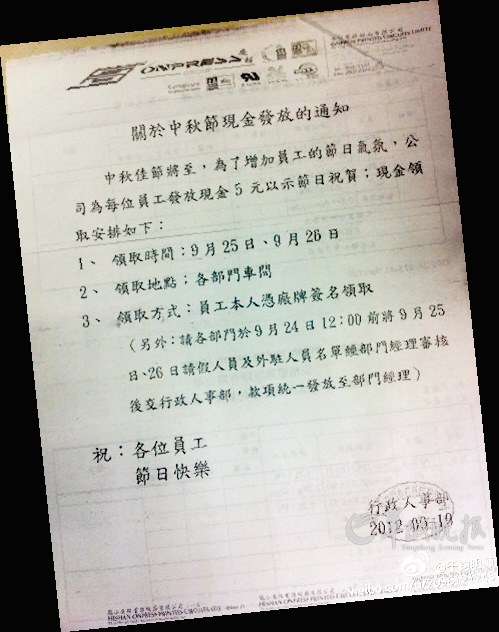 關於中秋節現金發放的通知
中秋佳節將至，為了增加員工的節日氣氛，公
司為每位員工發放現金5元以示節日祝賀；現金領
取安排如下：
1、領取時間：9月25日、9月26日
2、領取地點：各部門車間
3、領取方式：員工本人憑廠牌簽名領取
（另外：請各部門於9月24日12:00前將9月25
日、26日請假人員及外駐人員名單經部門經理審核
後交行政人事部，款項統一發放至部門經理）
祝：各位員工
節日快樂
行政人事部
2012-09-19
羊城晚報
Yangcheng Evening News